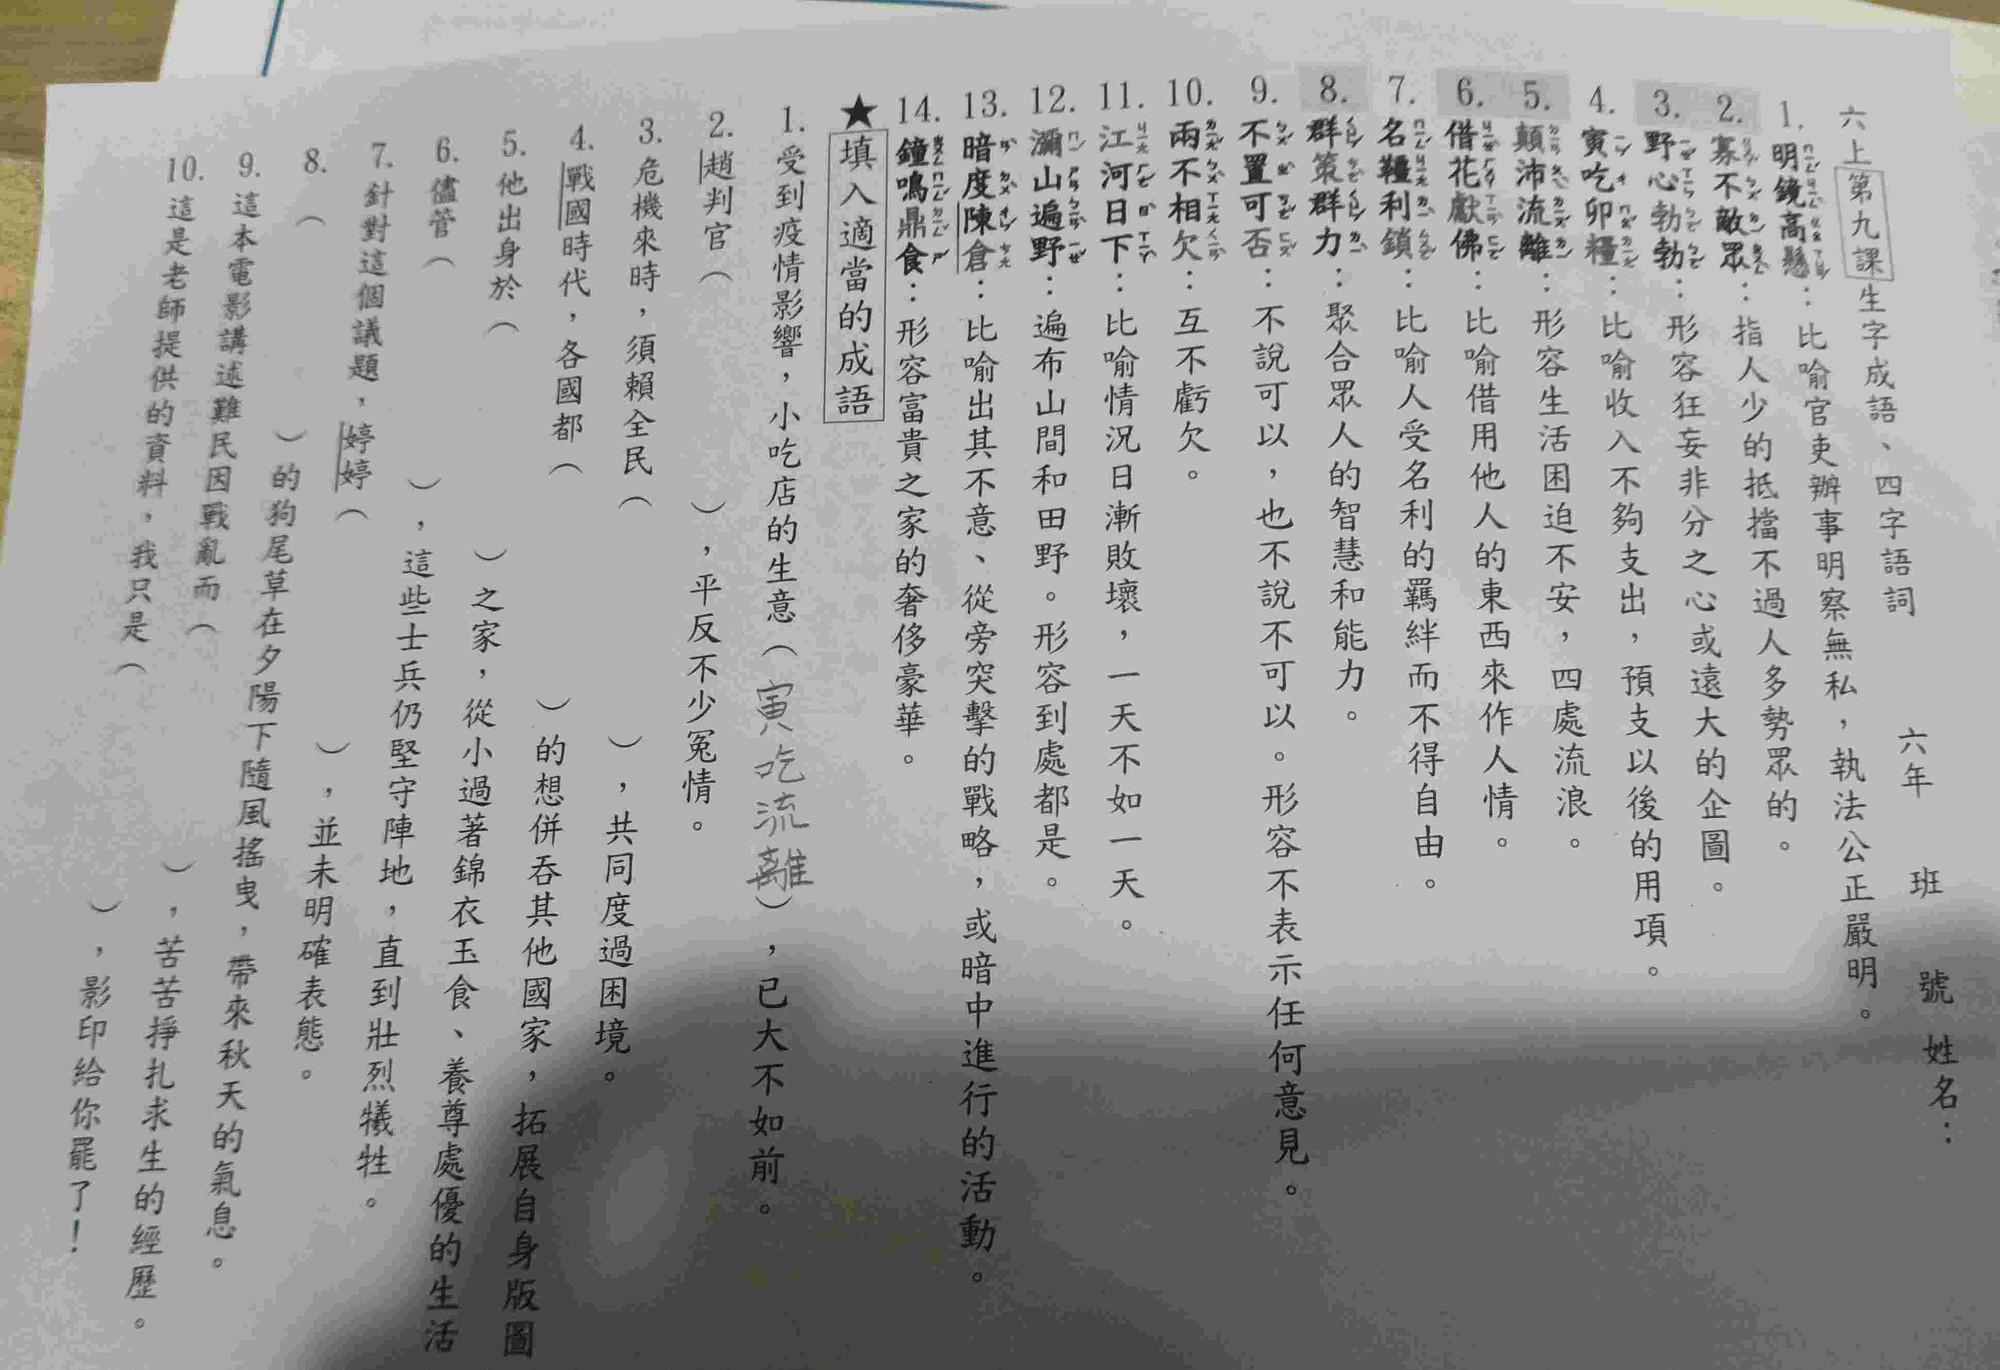 六上第九課生字成語、四字語詞　六年　班　號　姓名：
1. 明鏡高懸：比喻官吏辦事明察無私，執法公正嚴明。
2. 寡不敵眾：指人少的抵擋不過人多勢眾的。
3. 野心勃勃：形容狂妄非分之心或遠大的企圖。
4. 寅吃卯糧：比喻收入不夠支出，預支以後的用項。
5. 顛沛流離：形容生活困迫不安，四處流浪。
6. 借花獻佛：比喻借用他人的東西來作人情。
7. 名韁利鎖：比喻人受名利的羈絆而不得自由。
8. 群策群力：聚合眾人的智慧和能力。
9. 不置可否：不說可以，也不說不可以。形容不表示任何意見。
10. 兩不相欠：互不虧欠。
11. 江河日下：比喻情況日漸敗壞，一天不如一天。
12. 瀰山遍野：遍布山間和田野。形容到處都是。
13. 暗度陳倉：比喻出其不意、從旁突擊的戰略，或暗中進行的活動。
14. 鐘鳴鼎食：形容富貴之家的奢侈豪華。
★填入適當的成語
1. 受到疫情影響，小吃店的生意（寅吃流離），已大不如前。
2. 趙判官（　　　　），平反不少冤情。
3. 危機來時，須賴全民（　　　　），共同度過困境。
4. 戰國時代，各國都（　　　　）的想併吞其他國家，拓展自身版圖
5. 他出身於（　　　　）之家，從小過著錦衣玉食、養尊處優的生活
6. 儘管（　　　　），這些士兵仍堅守陣地，直到壯烈犧牲。
7. 針對這個議題，婷婷（　　　　），並未明確表態。
8. （　　　　）的狗尾草在夕陽下隨風搖曳，帶來秋天的氣息。
9. 這本電影講述難民因戰亂而（　　　　），苦苦掙扎求生的經歷。
10. 這是老師提供的資料，我只是（　　　　），影印給你罷了！